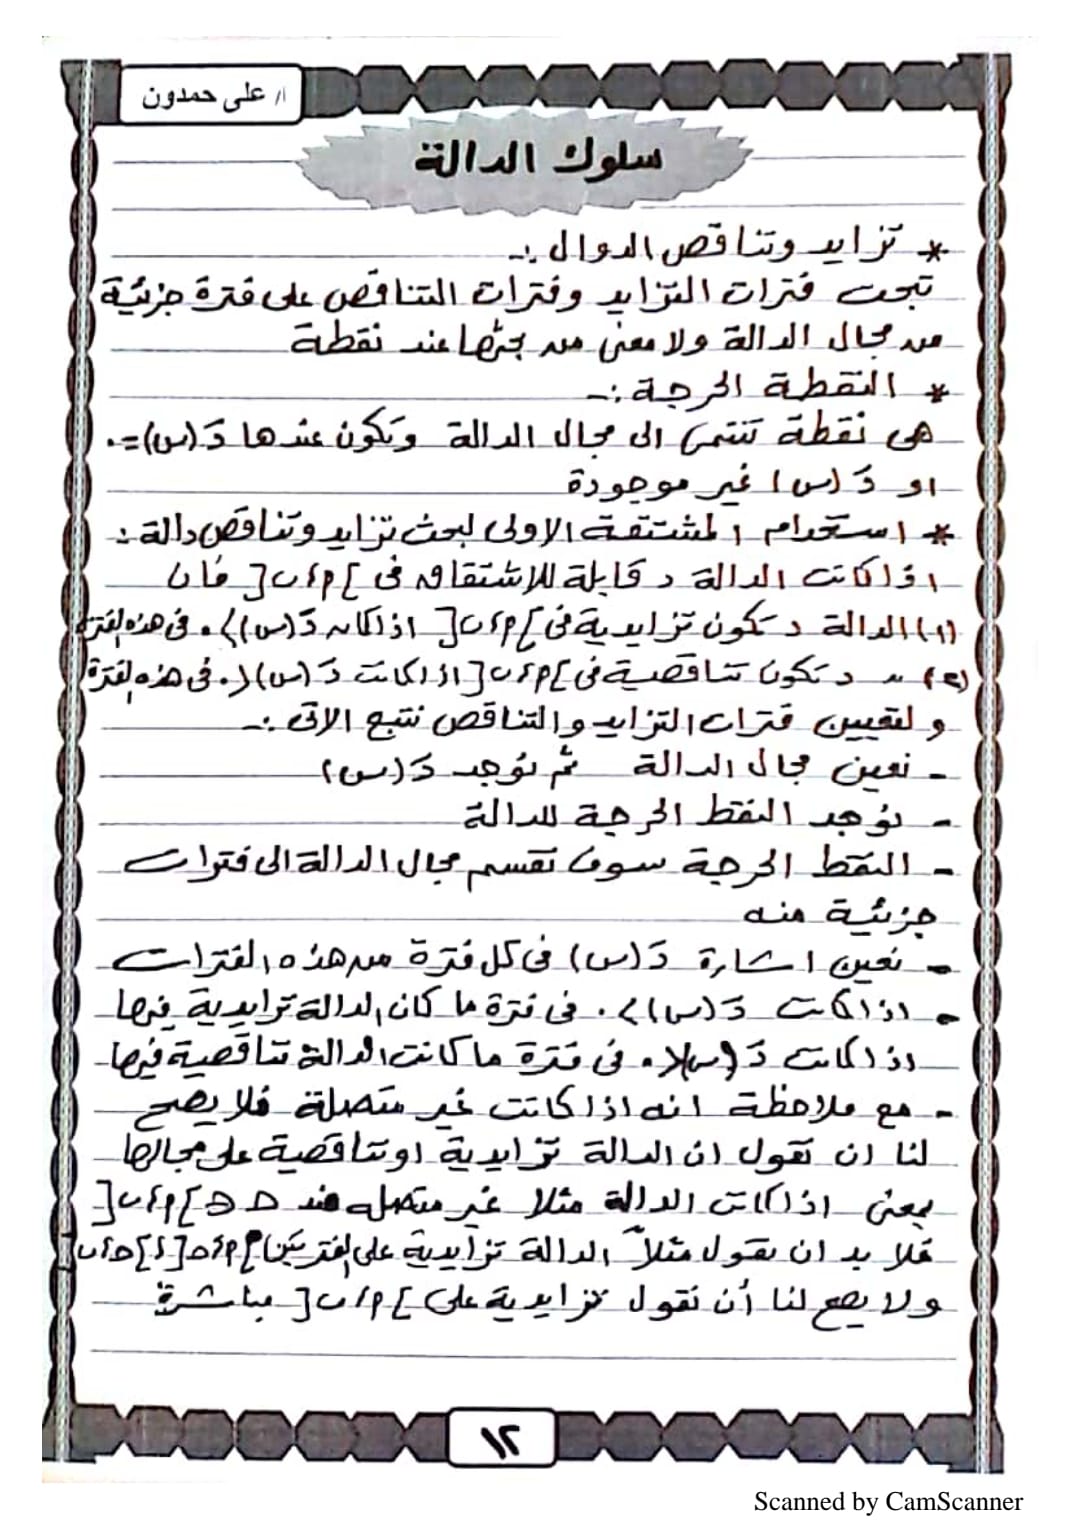 ا/ على حمدون
سلوك الدالة
* تزايد وتناقص الدوال :-
تبحث فترات التزايد وفترات التناقص على فترة جزئية
من مجال الدالة ولا معنى من بحثها عند نقطة
* النقطة الحرجة :-
هى نقطة تنتمى الى مجال الدالة وتكون عندها دَ(س)=٠
او دَ(س) غير موجودة
* استخدام المشتقة الاولى لبحث تزايد وتناقص دالة :
اذا كانت الدالة د قابلة للاشتقاق فى ]م،ب[ فان
(١) الدالة د تكون تزايدية فى ]م،ب[ اذا كان دَ(س)>٠ فى هذه الفترة
(٢) " د تكون تناقصية فى ]م،ب[ اذا كانت دَ(س)<٠ فى هذه الفترة
و لتعيين فترات التزايد والتناقص نتبع الاتى :-
- نعين مجال الدالة ثم نوجد دَ(س)
- نوجد النقط الحرجة للدالة
- النقط الحرجة سوف تقسم مجال الدالة الى فترات
جزئية منه
- نعين اشارة دَ(س) فى كل فترة من هذه الفترات
- اذا كانت دَ(س)>٠ فى فترة ما كان الدالة تزايدية فيها
اذا كانت دَ(س)<٠ فى فترة ما كانت الدالة تناقصية فيها
- مع ملاحظة انه اذا كانت غير متصلة فلا يصح
لنا ان نقول ان الدالة تزايدية او تناقصية على مجالها
بمعنى اذا كانت الدالة مثلا غير متصله عند حـ ∈ ]م،ب[
فلا بد ان نقول مثلاً الدالة تزايدية على الفترتين ]م،حـ[ ، ]حـ،ب[
ولا يصح لنا أن نقول تزايدية على ]م،ب[ مباشرة
١٢
Scanned by CamScanner